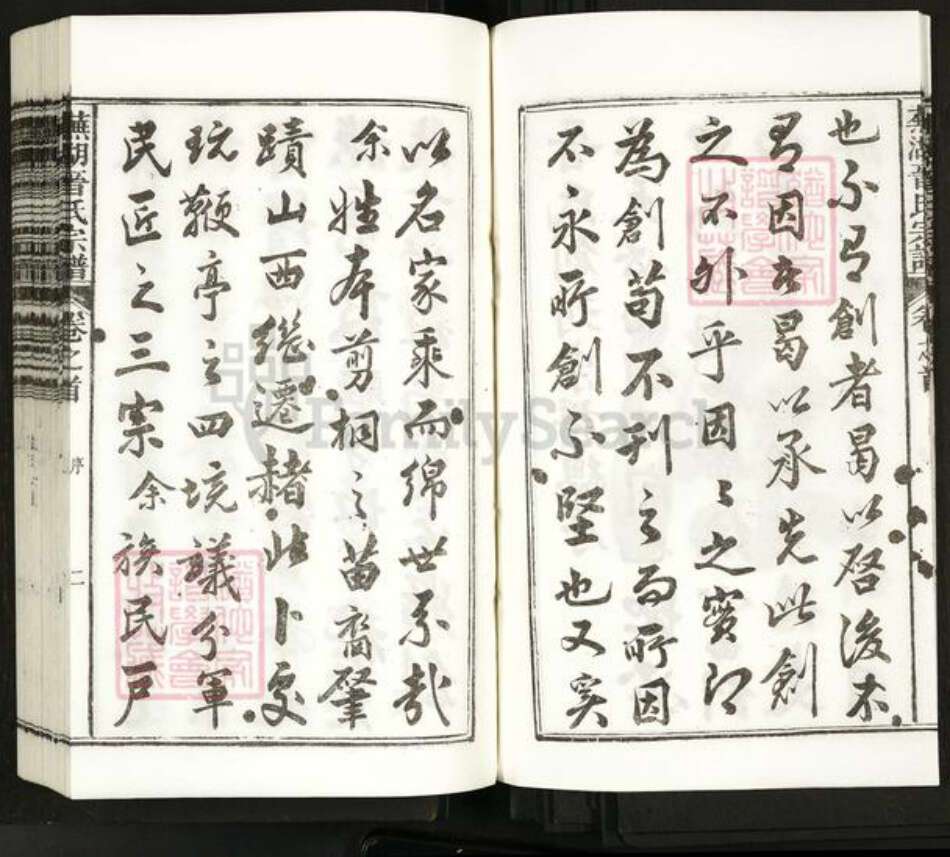 也不有創者曷以啓後不
有因者曷以承先此創
之不外乎因因之實即
為創苟不刊之而所因
不永所創不堅也又奚
以名家乘而綿世系哉
余姓本剪桐之苗裔肇
蹟山西繼遷赭此卜處
玩鞭亭之四境議分軍
民匠之三宗余族民戶
蕪湖晋氏宗譜
卷之首
序
二
FamilySearch